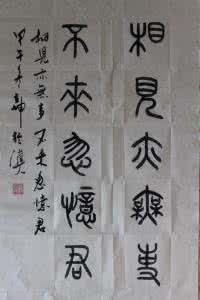 相見亦無事
不來忽憶君
相見亦無事不來忽憶君
甲午年